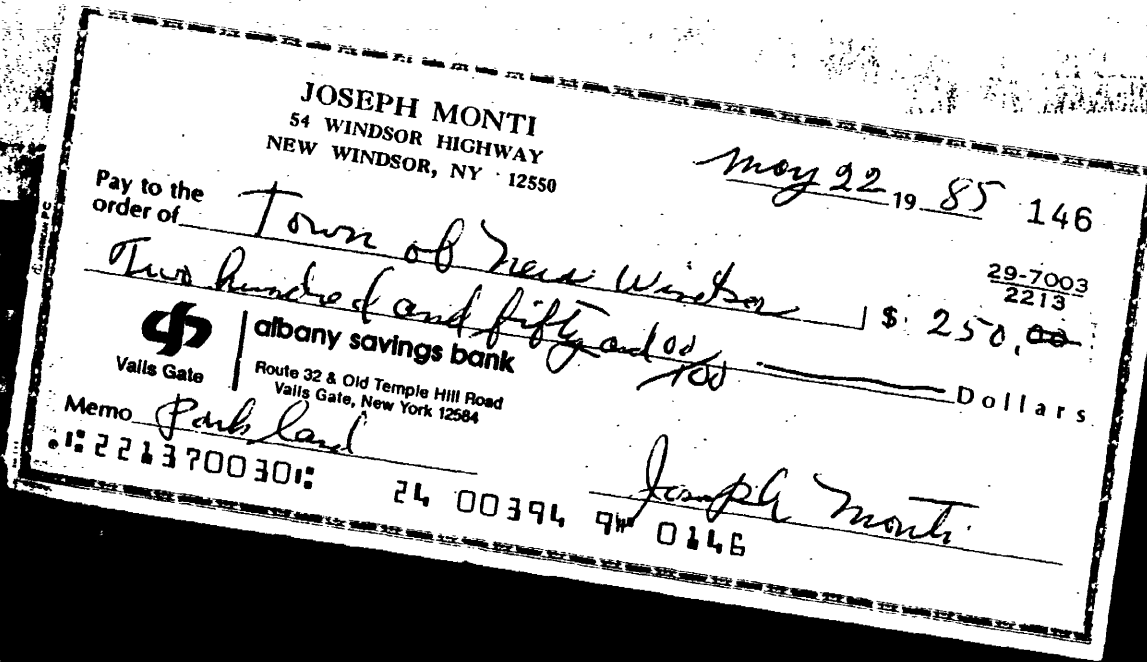 JOSEPH MONTI
54 WINDSOR HIGHWAY
NEW WINDSOR, NY 12550
May 22 19 85 146
Pay to the
order of Town of New Windsor $ 250.00
29-7003
2213
Two hundred and fifty and 00/100 Dollars
albany savings bank
Vails Gate
Route 32 & Old Temple Hill Road
Vails Gate, New York 12584
Memo Park land
Joseph Monti
⑆221370030⑆ 24 00394 9⑈ 0146